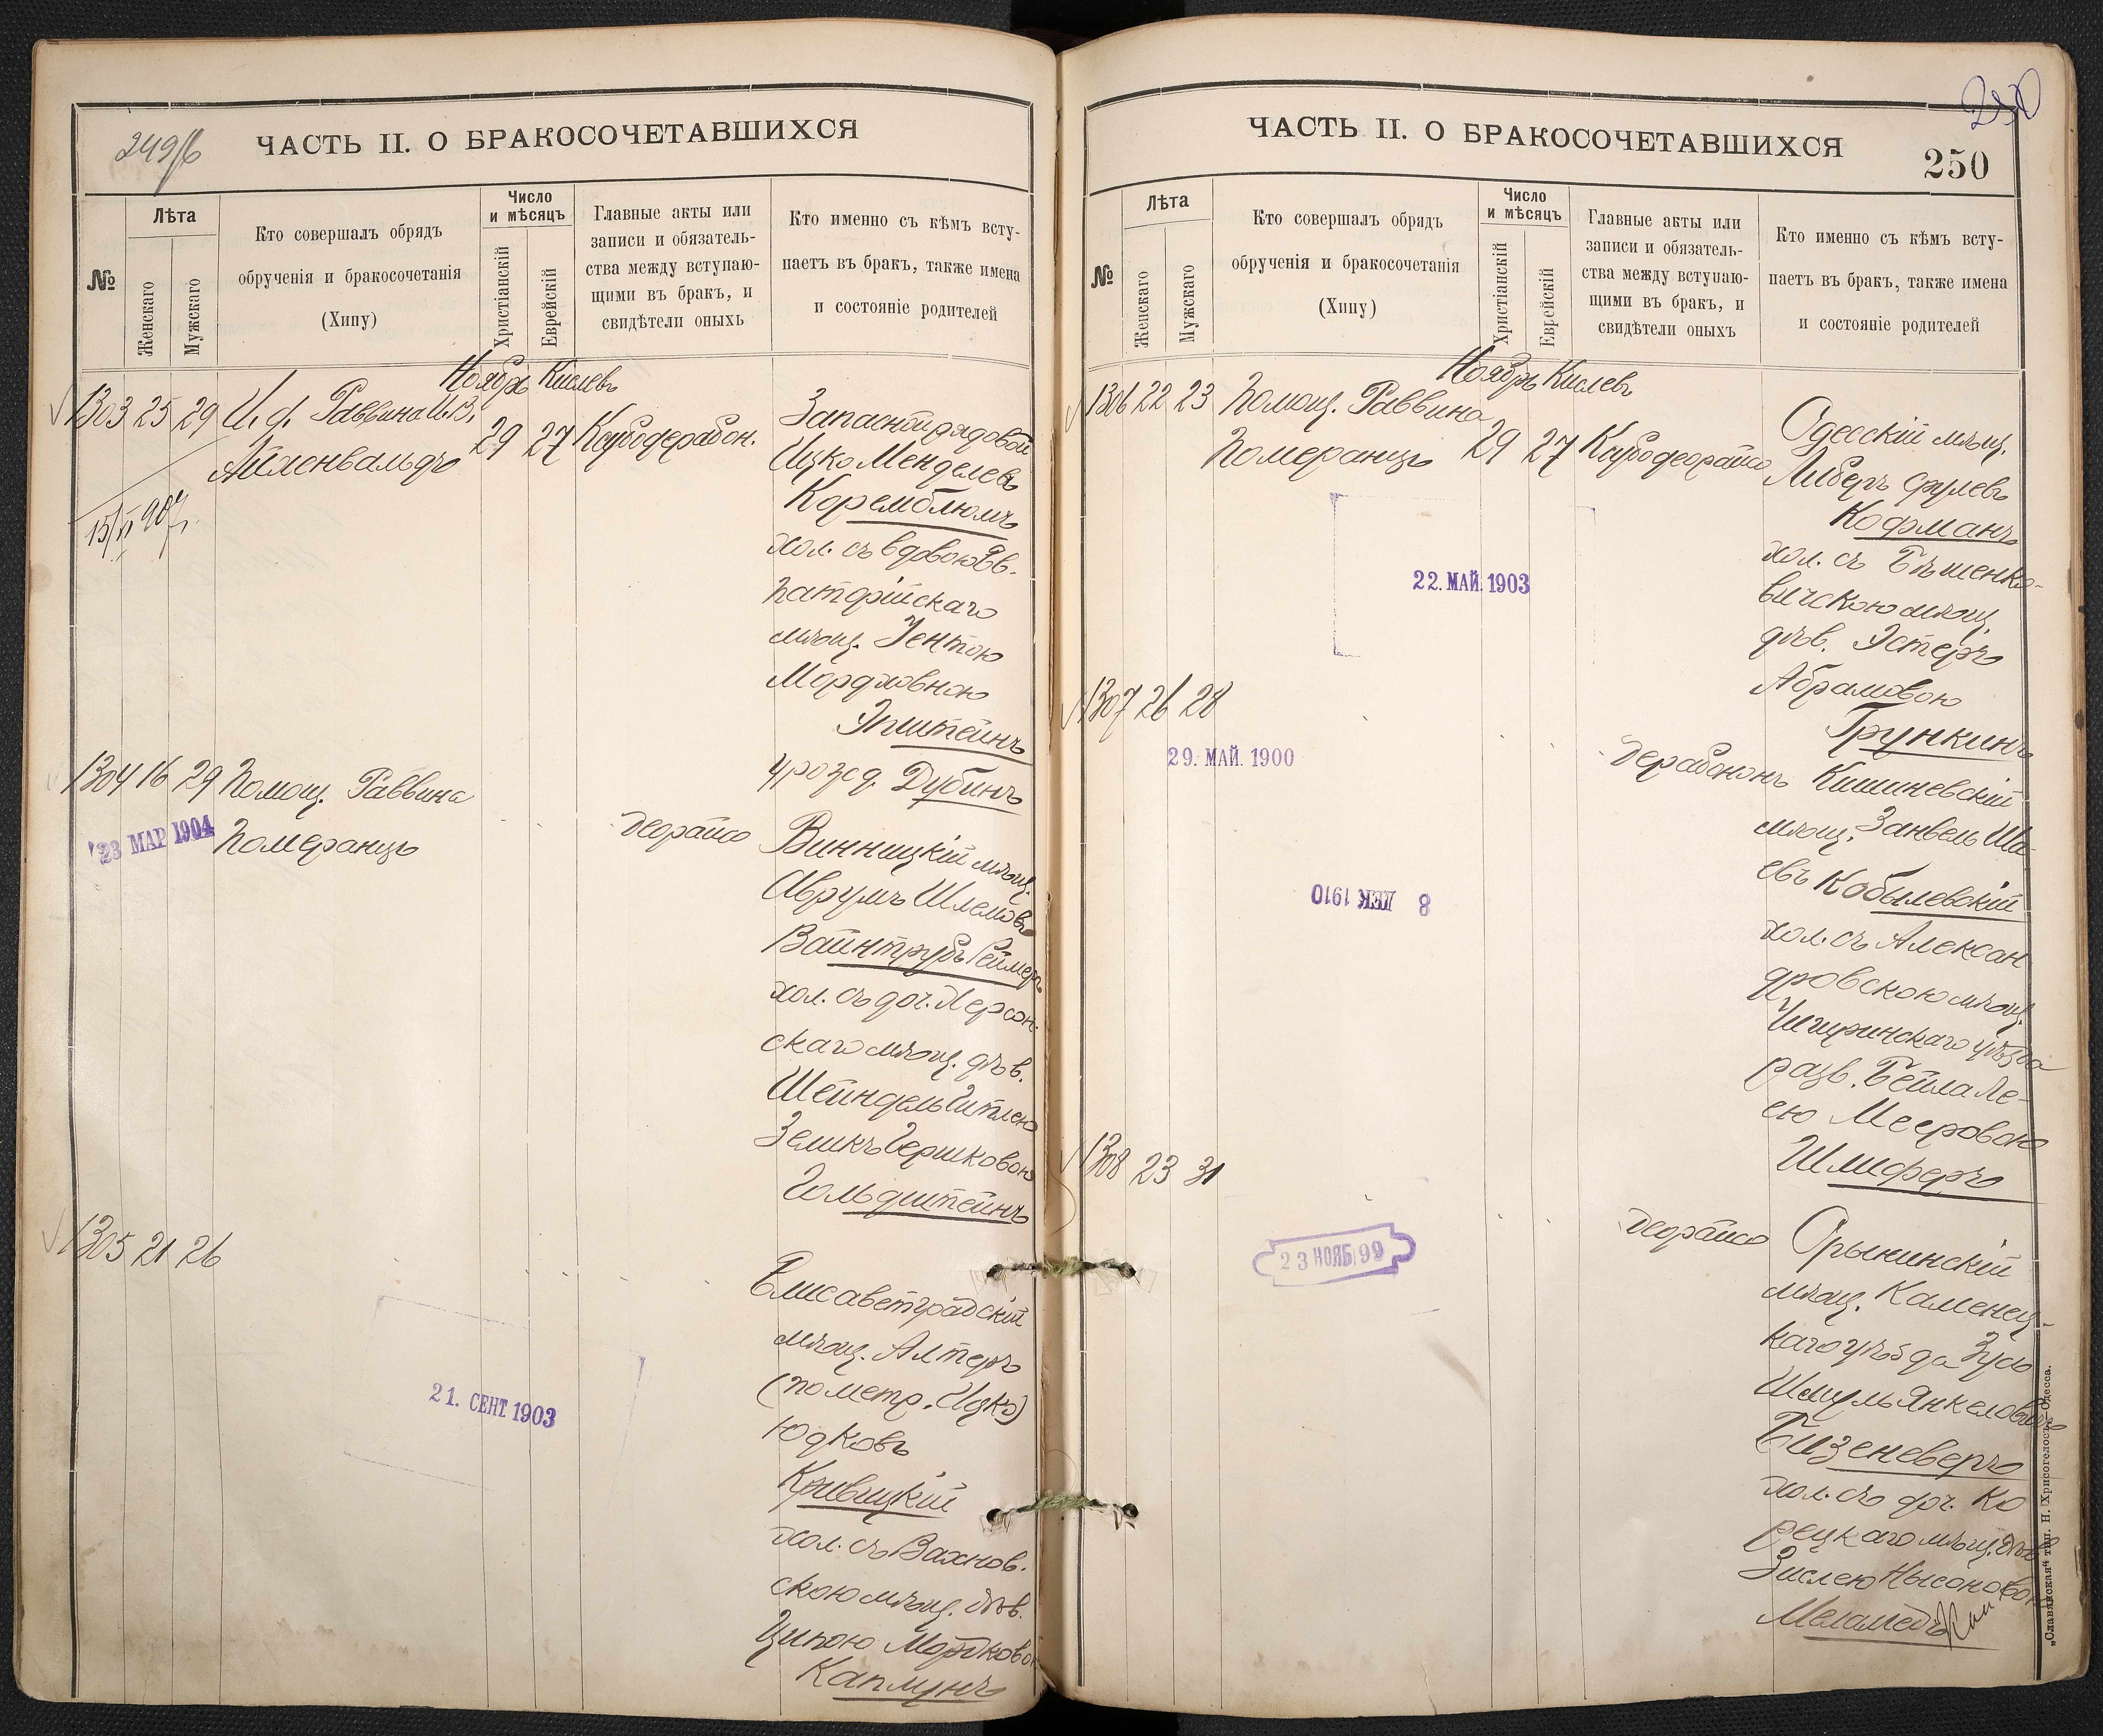 249/б
ЧАСТЬ II. О БРАКОСОЧЕТАВШИХСЯ
№
Лѣта
Женскаго
Мужскаго
Кто совершалъ обрядъ
обрученія и бракосочетанія
(Хипу)
Число
и мѣсяцъ
Христіанскій
Еврейскій
Главные акты или
записи и обязатель-
ства между вступаю-
щими въ бракъ, и
свидѣтели оныхъ
Кто именно съ кѣмъ всту-
паетъ въ бракъ, также имена
и состояніе родителей
Ноябрь Кислевъ
1303 25 29 И. д. Раввина И. В.
Айхенвальдъ
29 27
15/VI 907 г.
Запасной рядовой
Ицко Менделевъ
Корембліомъ
хол. съ вдовою Ев-
паторійскаго
мѣщ. Зентою
Мордховною
Эпштейнъ
урожд. Дубинъ
1304 16 29 Помощ. Раввина
Померанцъ
23 МАР 1904
деорайсо
Винницкій мѣщ.
Аврумъ Шлемовъ
Вайнтрубъ Реймеръ
хол. съ доч. Херсон-
скаго мѣщ. дѣв.
Шейндель Гитлею
Зеликъ Гершковою
Гольдштейнъ
1305 21 26
21. СЕНТ 1903
Елисаветградскій
мѣщ. Алтеръ
(по метр. Ицко)
Юдковъ
Кривицкій
хол. съ Вахнов-
скою мѣщ. дѣв.
Ципою Мордковою
Каплунъ
250
ЧАСТЬ II. О БРАКОСОЧЕТАВШИХСЯ
250
№
Лѣта
Женскаго
Мужскаго
Кто совершалъ обрядъ
обрученія и бракосочетанія
(Хипу)
Число
и мѣсяцъ
Христіанскій
Еврейскій
Главные акты или
записи и обязатель-
ства между вступаю-
щими въ бракъ, и
свидѣтели оныхъ
Кто именно съ кѣмъ всту-
паетъ въ бракъ, также имена
и состояніе родителей
Ноябрь Кислевъ
1306 22 23 Помощ. Раввина
Померанцъ 29 27
22. МАЙ. 1903
Одесскій мѣщ.
Либеръ Срулевъ
Кофманъ
хол. съ Бѣшенко-
вичскою мѣщ.
дѣв. Эстеръ
Абрамовою
Грункинъ
1307 26 28
29. МАЙ. 1900
8 ДЕК 1910
дерабононъ
Кишиневскій
мѣщ. Занвель Ша-
евъ Кобылевскій
хол. съ Алексан
дровскою мѣщ.
Чигиринскаго уѣзда
разв. Бейла Ле-
ею Мееровою
Шлиферъ
1308 23 31
23 НОЯБ 99
деорайсо
Орынинскій
мѣщ. Каменец-
каго уѣзда Зусь
Шмуль Янкеловичъ
Бизеневеръ
хол. съ доч. Ко
рецкаго мѣщ. дѣв.
Зислею Нысоновою
Меламедъ
„Славянская“ тип. Н. Хрисогелосъ, Одесса.